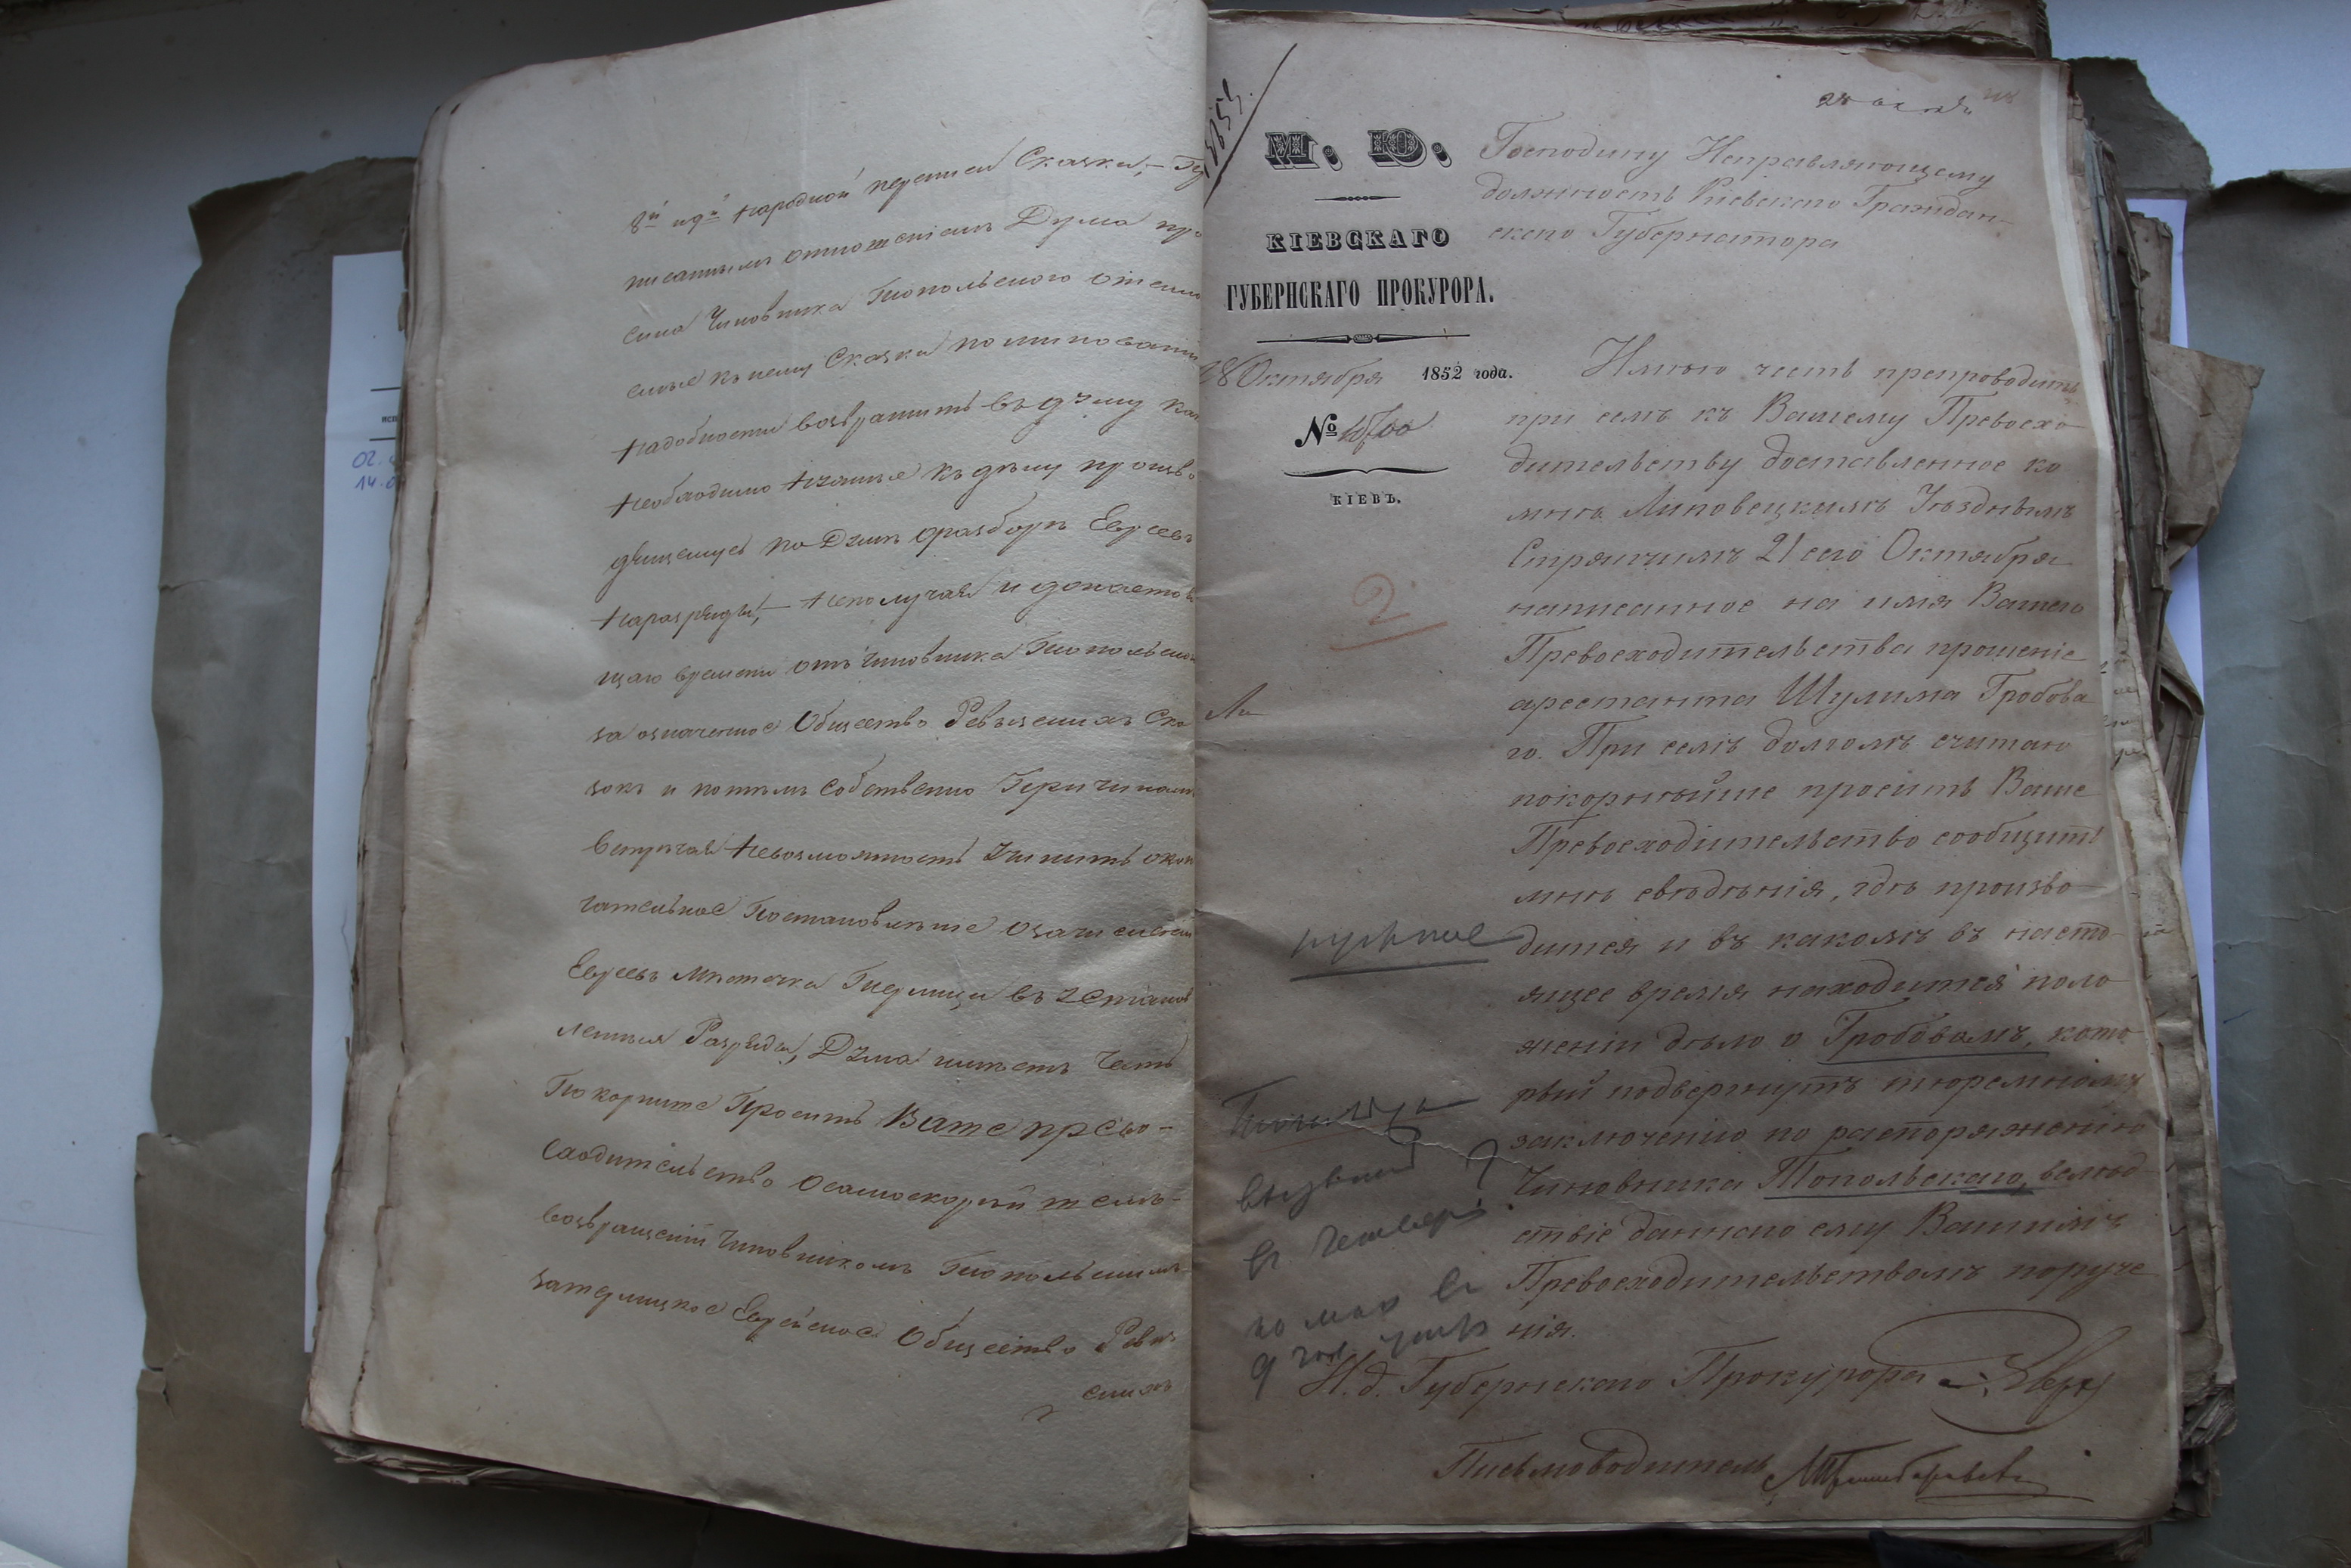 8й и 9й народной переписи Сказки,— 
писаннымъ отношеніемъ Дума про
сила Чиновника Топольского
сные къ нему Сказки по миновании
надобности возвратить въ думу как
необходимо нужные къ делу произво
дящемуся по Думе о разборе Евреевъ
на разряды,— неполучая и до насто
щаго времени отъ Чиновника Топольског
за означенное Общество Ревизскихъ Ска
зокъ и потомъ собственно Причинам
встречая невозможность учинить окон
чательное Постановление о зачислении
Евреевъ местечка Тедлица въ установ
ленныя Разряды, Дума имеетъ честь
Покорнише Просить Ваше прево-
сходительство о самоскорейшемъ-
возвращении Чиновникомъ Топольскимъ-
Еврейское Общество Ревиз
скихъ
М. Ю.
КІЕВСКАГО
ГУБЕРНСКАГО ПРОКУРОРА.
28 Октября 1852 года.
№
КІЕВЪ.
2
нужное
въ четвергъ
ко мне въ
9 час. утра
Господину Исправляющему
должность Кіевскаго Граждан-
скаго Губернатора
Имѣю честь препроводить
при семъ къ Вашему Превосхо
дительству доставленное ко
мнѣ Липовецкимъ Уѣзднымъ
Стряпчимъ 21 сего Октября
написанное на имя Вашего
Превосходительства прошеніе
арестанта Шулима Гробова
го. При семъ долгомъ считаю
покорнѣйше просить Ваше
Превосходительство сообщить
мнѣ свѣдѣнія, гдѣ произво
дится и въ какомъ въ насто-
ящее время находится поло
женіи дѣло о Гробовомъ, кото
рый подвергнутъ тюремному
заключенію по распоряженію
Чиновника Топольскаго, вслѣд-
ствіе даннаго ему Вашимъ
Превосходительствомъ поруче
нія.
И. д. Губернскаго Прокурора
Письмоводитель